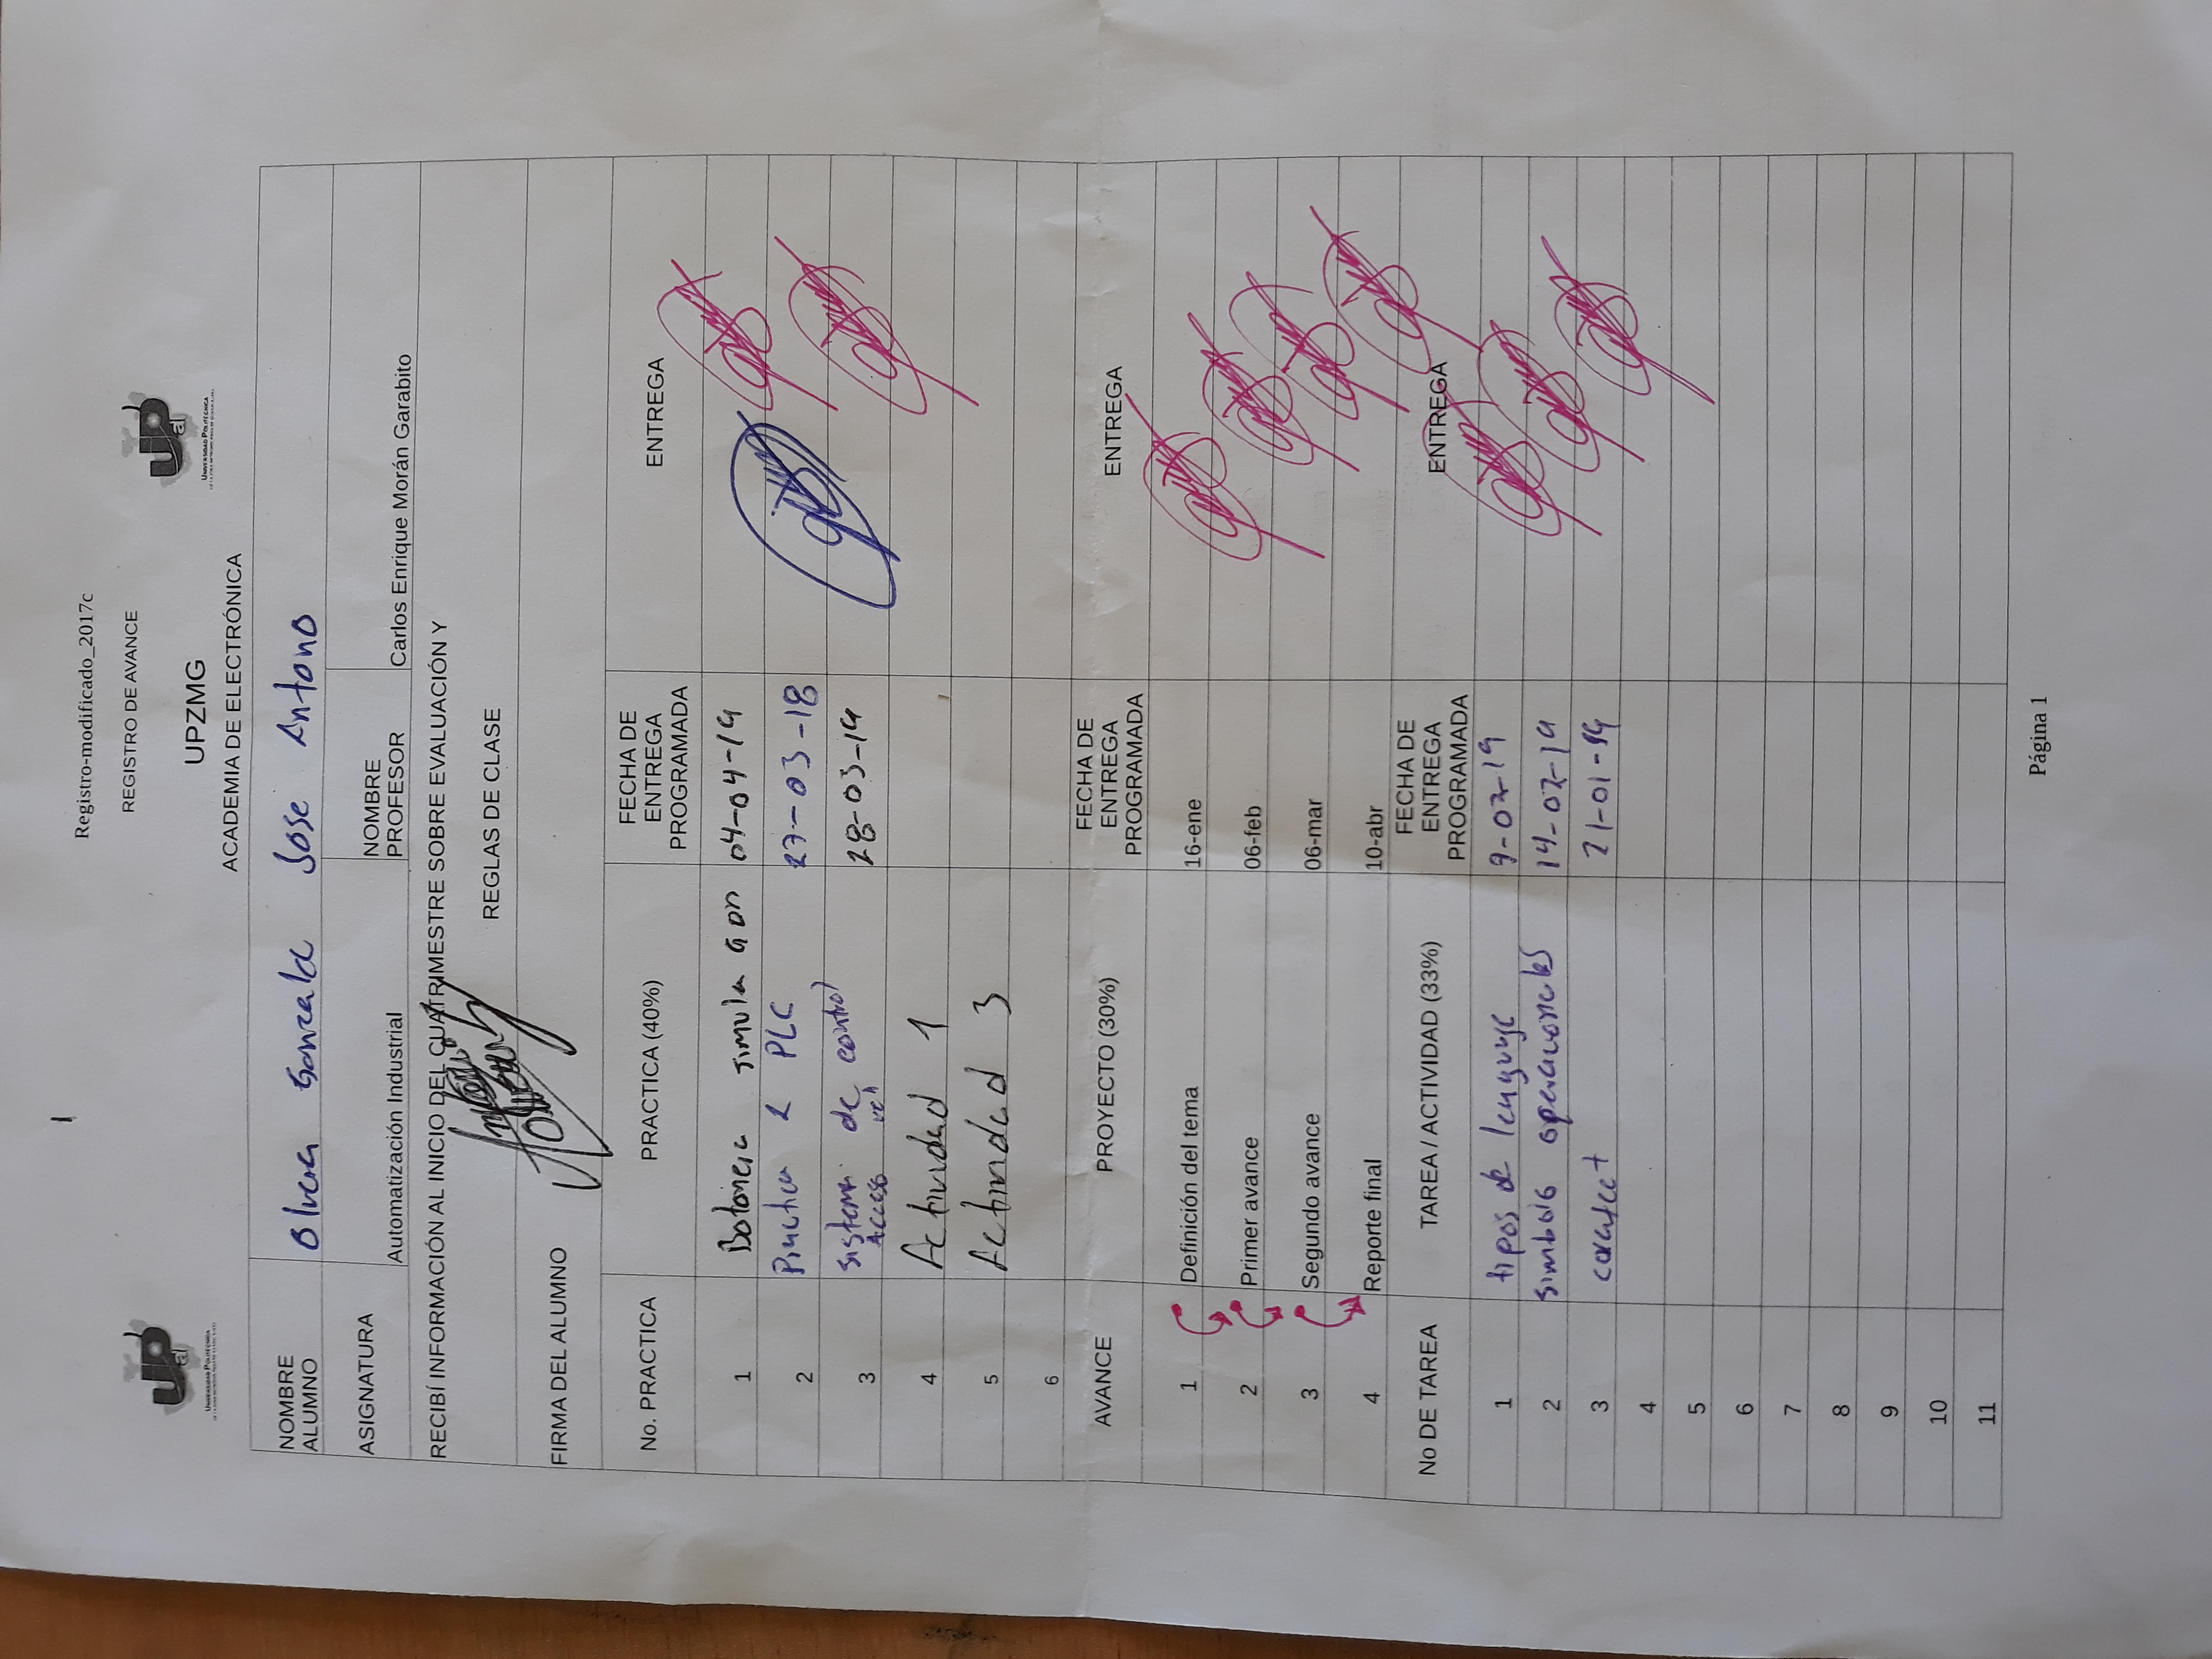 Registro-modificado_2017c
REGISTRO DE AVANCE
UP al
UNIVERSIDAD POLITÉCNICA
UP al
UNIVERSIDAD POLITÉCNICA
UPZMG
ACADEMIA DE ELECTRÓNICA
NOMBRE ALUMNO Olvera Gonzalez Jose Antono
ASIGNATURA Automatización Industrial NOMBRE PROFESOR Carlos Enrique Morán Garabito
RECIBÍ INFORMACIÓN AL INICIO DEL CUATRIMESTRE SOBRE EVALUACIÓN Y
REGLAS DE CLASE
FIRMA DEL ALUMNO Antonio Olvera
No. PRACTICA PRACTICA (40%) FECHA DE ENTREGA PROGRAMADA ENTREGA
1 Botonera simulacion 04-04-19
2 Practica 2 PLC 27-03-18
3 sistema de control Acceso veh 28-03-19
4 Actividad 1
5 Actividad 3
6
AVANCE PROYECTO (30%) FECHA DE ENTREGA PROGRAMADA ENTREGA
1 Definición del tema 16-ene
2 Primer avance 06-feb
3 Segundo avance 06-mar
4 Reporte final 10-abr
No DE TAREA TAREA / ACTIVIDAD (33%) FECHA DE ENTREGA PROGRAMADA ENTREGA
1 tipos de lenguaje 7-02-19
2 simbolo operacionales 14-02-19
3 21-01-19
4
5
6
7
8
9
10
11
Página 1